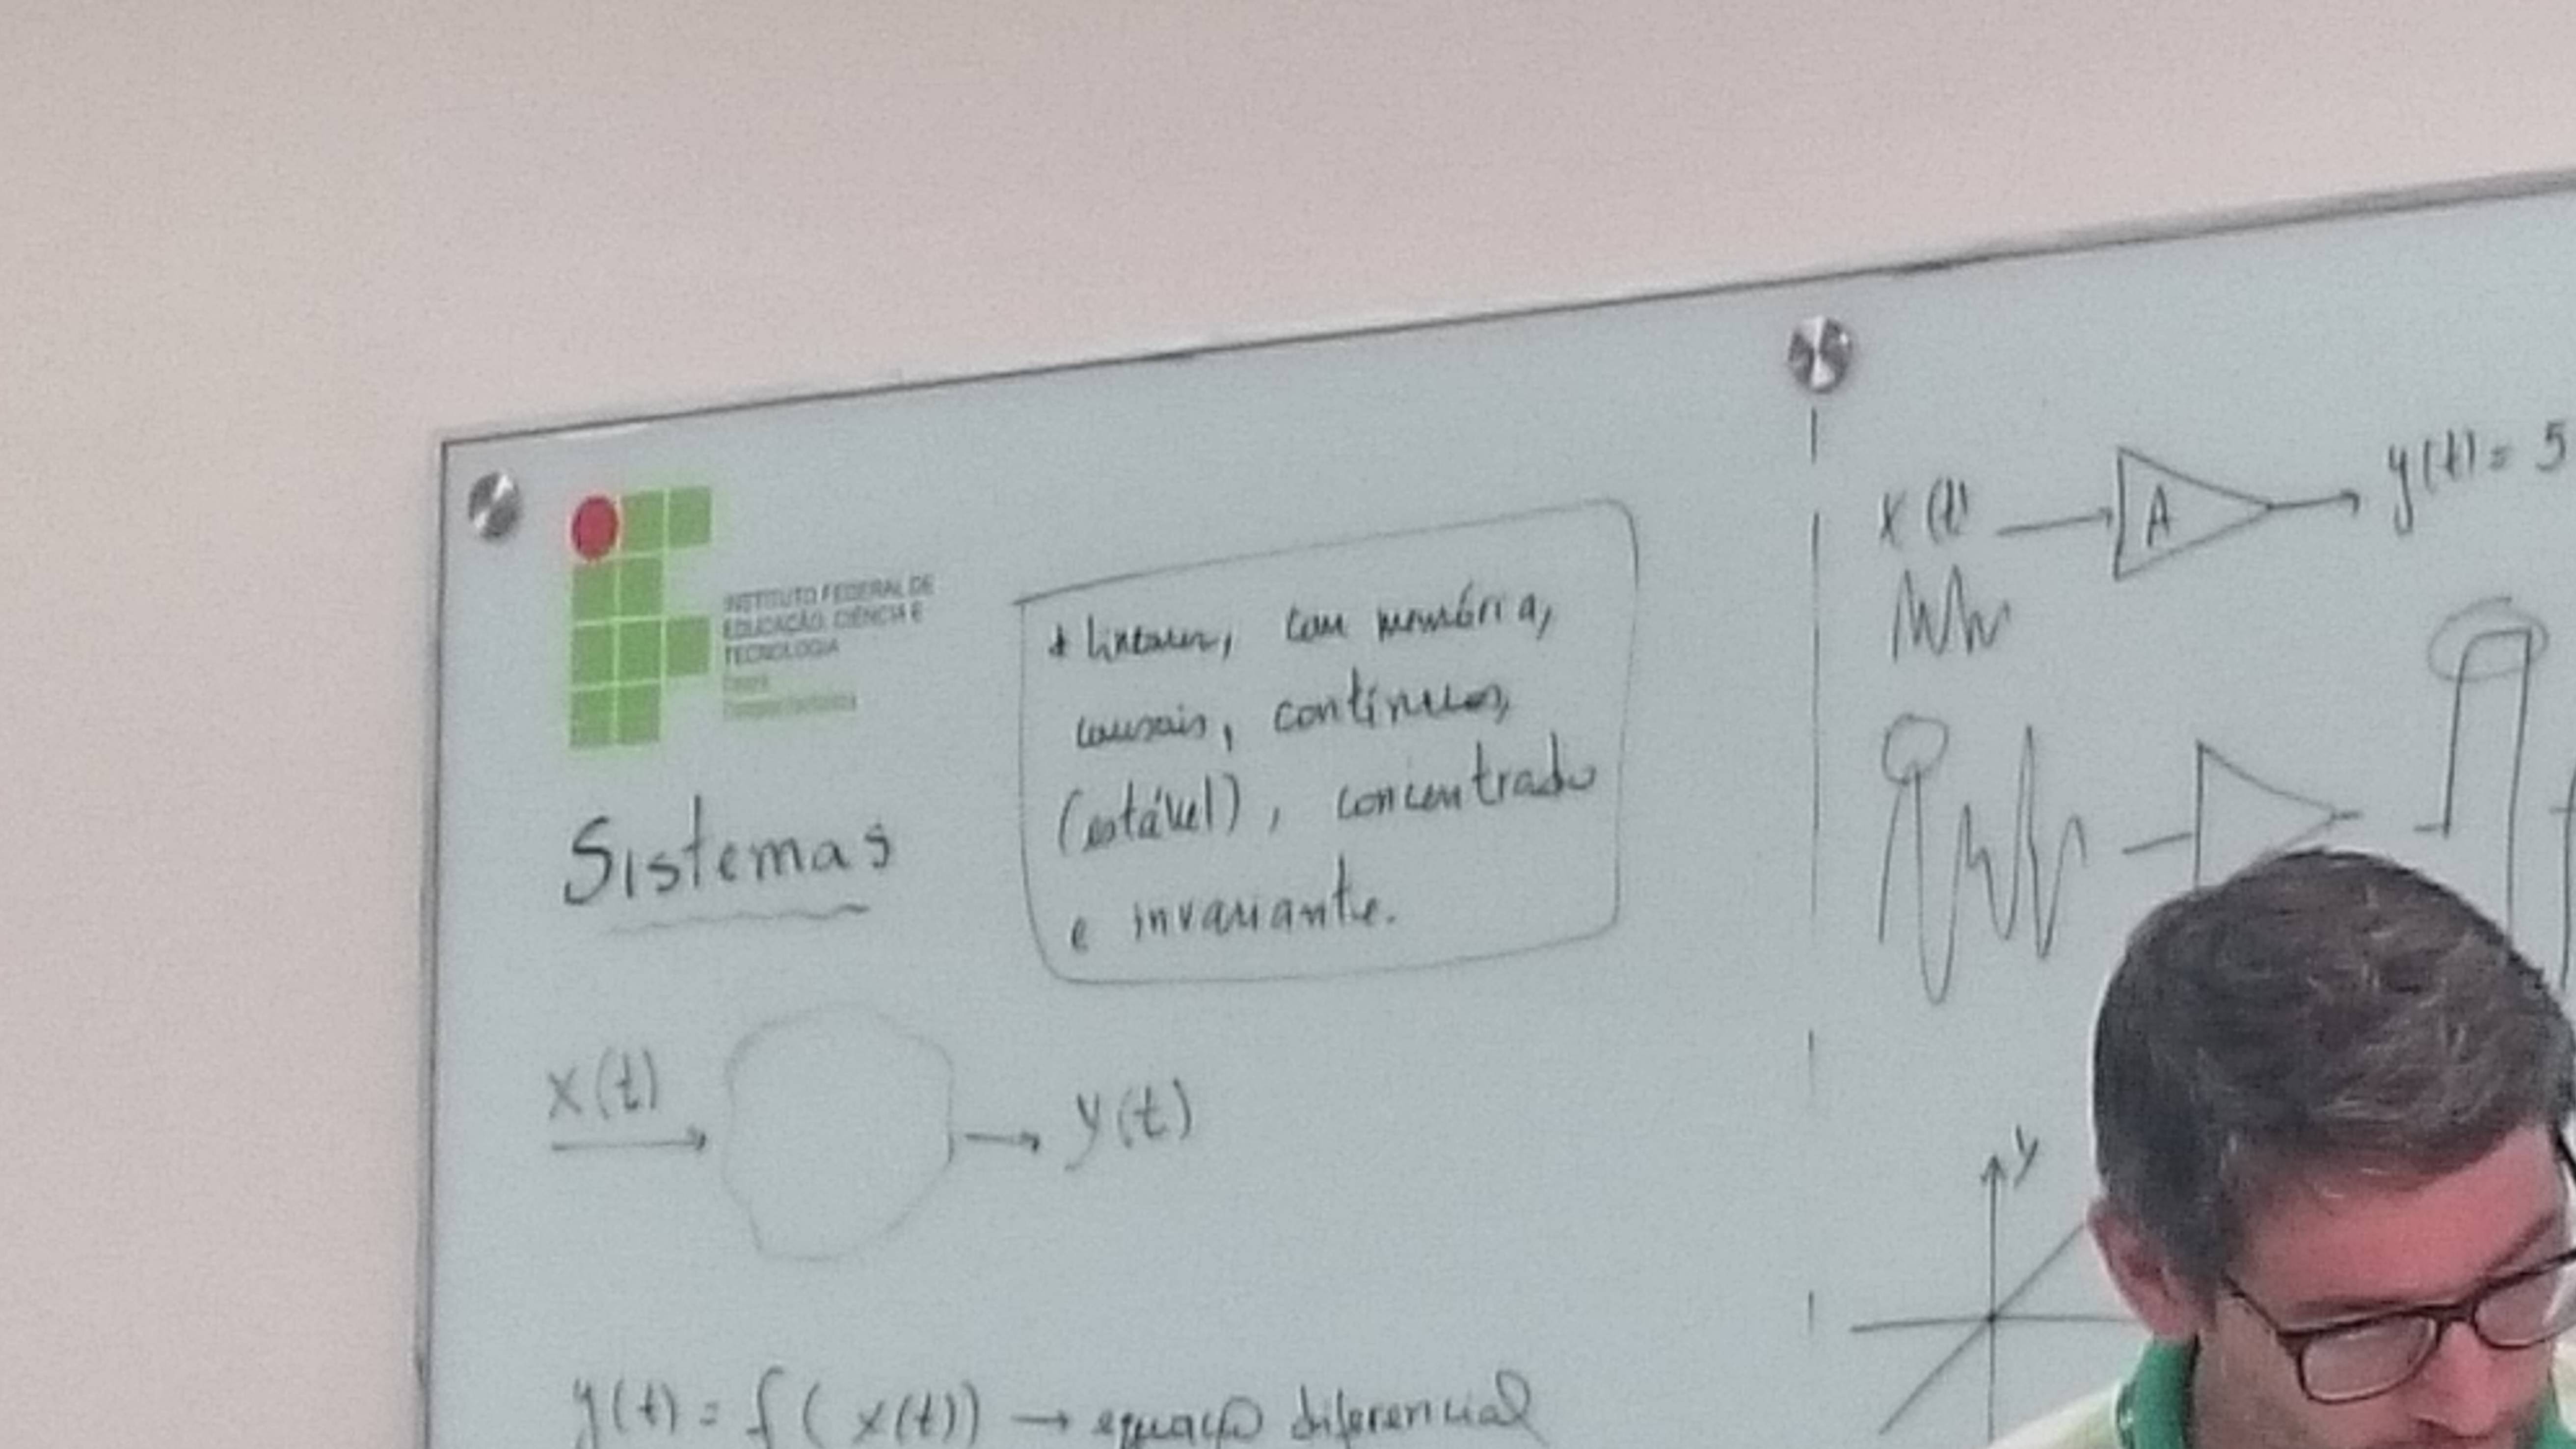 INSTITUTO FEDERAL DE
EDUCAÇÃO, CIÊNCIA E
TECNOLOGIA
Ceará
Sistemas
* lineares, com memória,
causais, contínuos,
(estável), concentrado
e invariante.
x(t)
y(t)
y(t) = f(x(t)) → equação diferencial
x(t)
A
y(t) = 5
y